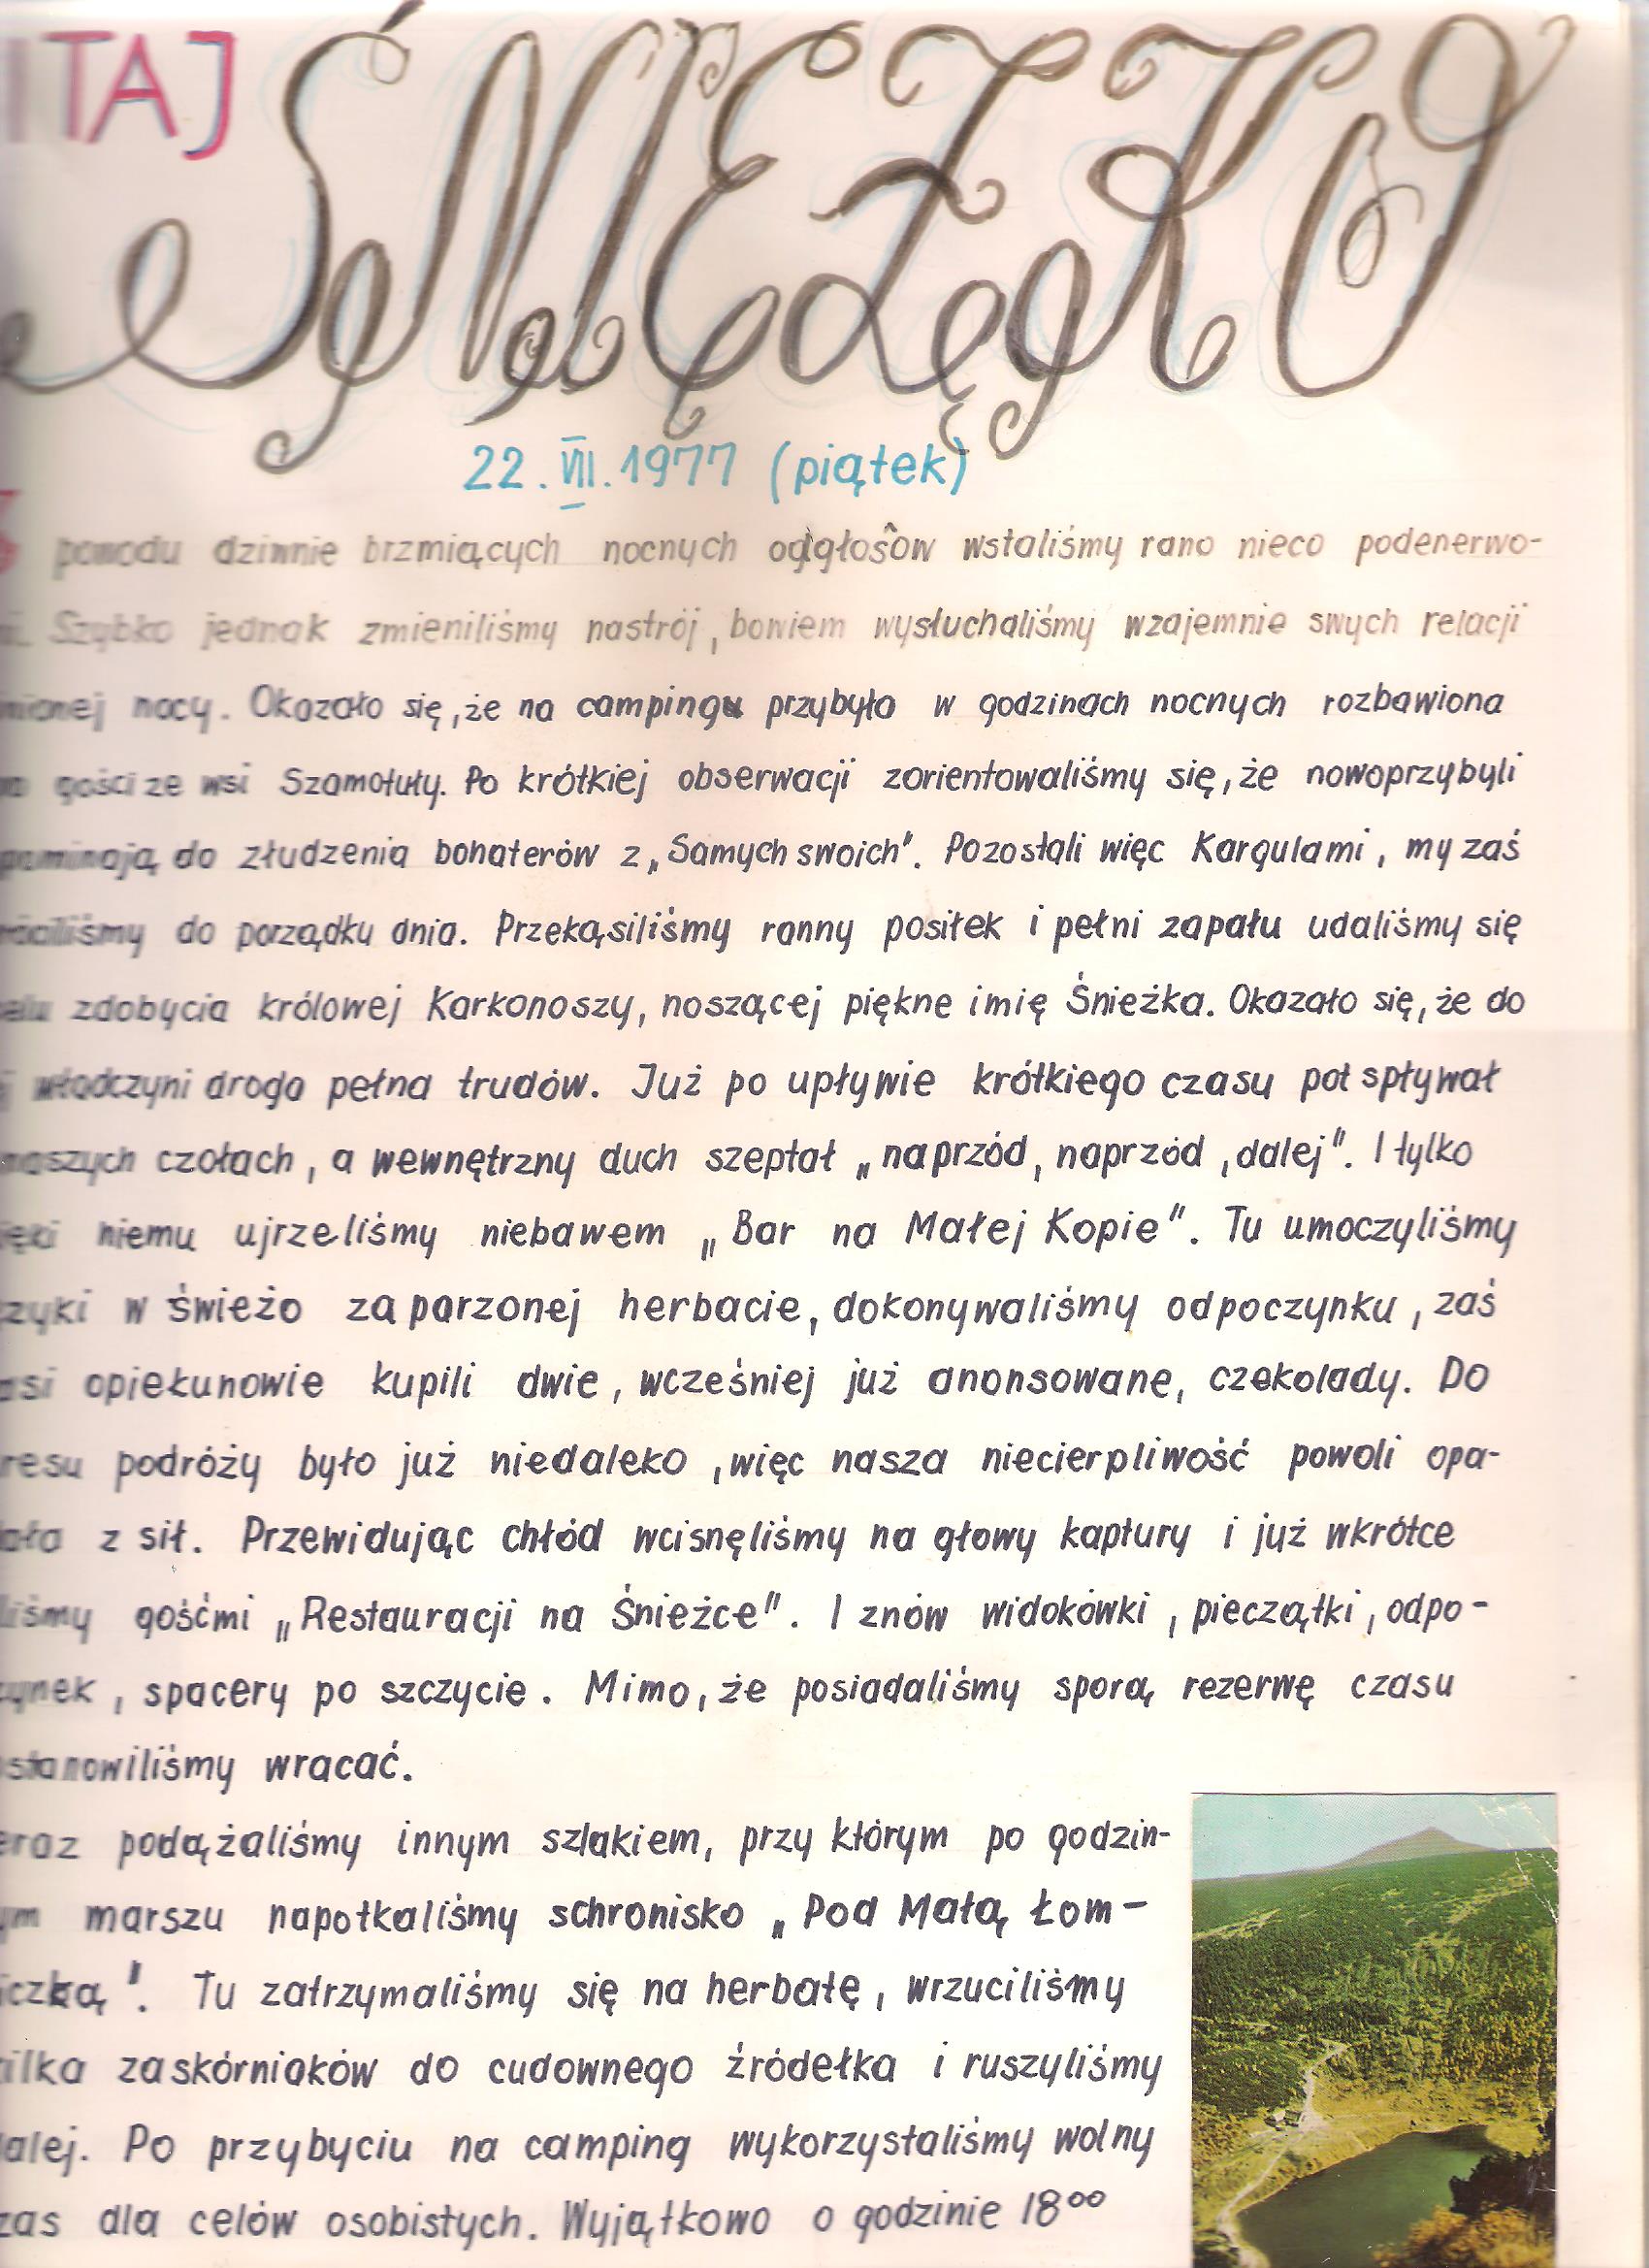 ITAJ ŚNIEŻKO
22.VII.1977 (piątek)
Z powodu dziwnie brzmiących nocnych odgłosów wstaliśmy rano nieco podenerwo-
ni. Szybko jednak zmieniliśmy nastrój, bowiem wysłuchaliśmy wzajemnie swych relacji
nionej nocy. Okazało się, że na campingu przybyła w godzinach nocnych rozbawiona
gości ze wsi Szamotuły. Po krótkiej obserwacji zorientowaliśmy się, że nowoprzybyli
pominają do złudzenia bohaterów z „Samych swoich". Pozostali więc Kargulami, my zaś
róciliśmy do porządku dnia. Przekąsiliśmy ranny posiłek i pełni zapału udaliśmy się
elu zdobycia królowej Karkonoszy, noszącej piękne imię Śnieżka. Okazało się, że do
j władczyni droga pełna trudów. Już po upływie krótkiego czasu pot spływał
naszych czołach, a wewnętrzny duch szeptał „naprzód, naprzód, dalej". I tylko
ięki niemu ujrzeliśmy niebawem „Bar na Małej Kopie". Tu umoczyliśmy
zyki w świeżo zaparzonej herbacie, dokonywaliśmy odpoczynku, zaś
asi opiekunowie kupili dwie, wcześniej już anonsowane, czekolady. Do
resu podróży było już niedaleko, więc nasza niecierpliwość powoli opa-
ała z sił. Przewidując chłód wcisnęliśmy na głowy kaptury i już wkrótce
liśmy gośćmi „Restauracji na Śnieżce". I znów widokówki, pieczątki, odpo-
zynek, spacery po szczycie. Mimo, że posiadaliśmy sporą rezerwę czasu
stanowiliśmy wracać.
eraz podążaliśmy innym szlakiem, przy którym po godzin-
ym marszu napotkaliśmy schronisko „Pod Małą Łom-
iczką". Tu zatrzymaliśmy się na herbatę, wrzuciliśmy
ilka zaskórniaków do cudownego źródełka i ruszyliśmy
alej. Po przybyciu na camping wykorzystaliśmy wolny
zas dla celów osobistych. Wyjątkowo o godzinie 18⁰⁰